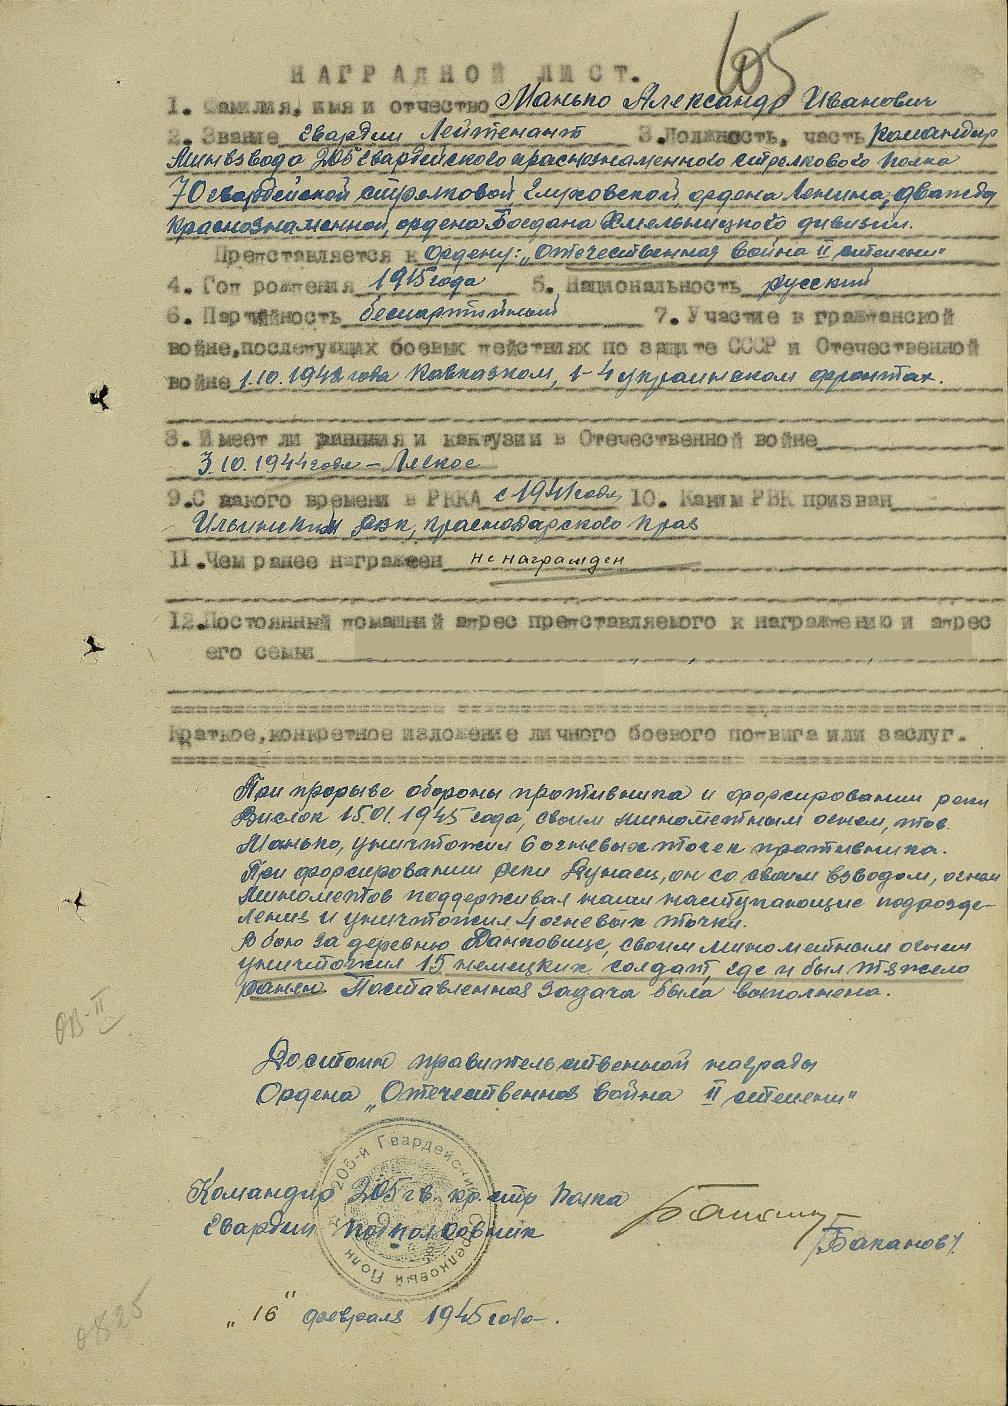 605
НАГРАДНОЙ ЛИСТ.
1. Фамилия, имя и отчество Манько Александр Иванович
2. Звание Гвардии Лейтенант 3. Должность, часть Командир
Минвзвода 205 Гвардейского краснознаменного стрелкового полка
70 гвардейской стрелковой Глуховской, ордена Ленина, дважды
Краснознаменной, ордена Богдана Хмельницкого дивизии.
Представляется к Ордену: „Отечественная война II степени"
4. Год рождения 1915 года 5. Национальность русский
6. Партийность беспартийный 7. Участие в гражданской
войне, последующих боевых действиях по защите СССР и Отечественной
войне 1.10.1942 года Кавказком, 1-4 украинском фронтах.
8. Имеет ли ранения и контузии в Отечественной войне
3.10.1944 года – Легкое
9. С какого времени в РККА с 1941 года 10. Каким РВК призван
Ильинским РВК, Краснодарского Края
11. Чем ранее награжден не награжден
12. Постоянный домашний адрес представляемого к награждению и адрес
его семьи
Краткое, конкретное изложение личного боевого подвига или заслуг.
При прорыве обороны противника и форсировании реки
Вислок 15.01.1945 года, своим минометным огнем, тов.
Манько, уничтожил 6 огневых точек противника.
При форсировании реки Дунаец, он со своим взводом, огнем
Минометов поддерживал наши наступающие подразде-
ления и уничтожил 4 огневых точки.
В бою за деревню Банковице, своим минометным огнем
уничтожил 15 немецких солдат, где и был тяжело
ранен. Поставленная задача была выполнена.
ОВ-II
Достоин правительственной награды
Ордена „Отечественная война II степени"
205-й Гвардейский Стрелковый Полк
Командир 205 гв. кр. стр полка
Гвардии подполковник
/Баканов/.
„16" февраля 1945 года.